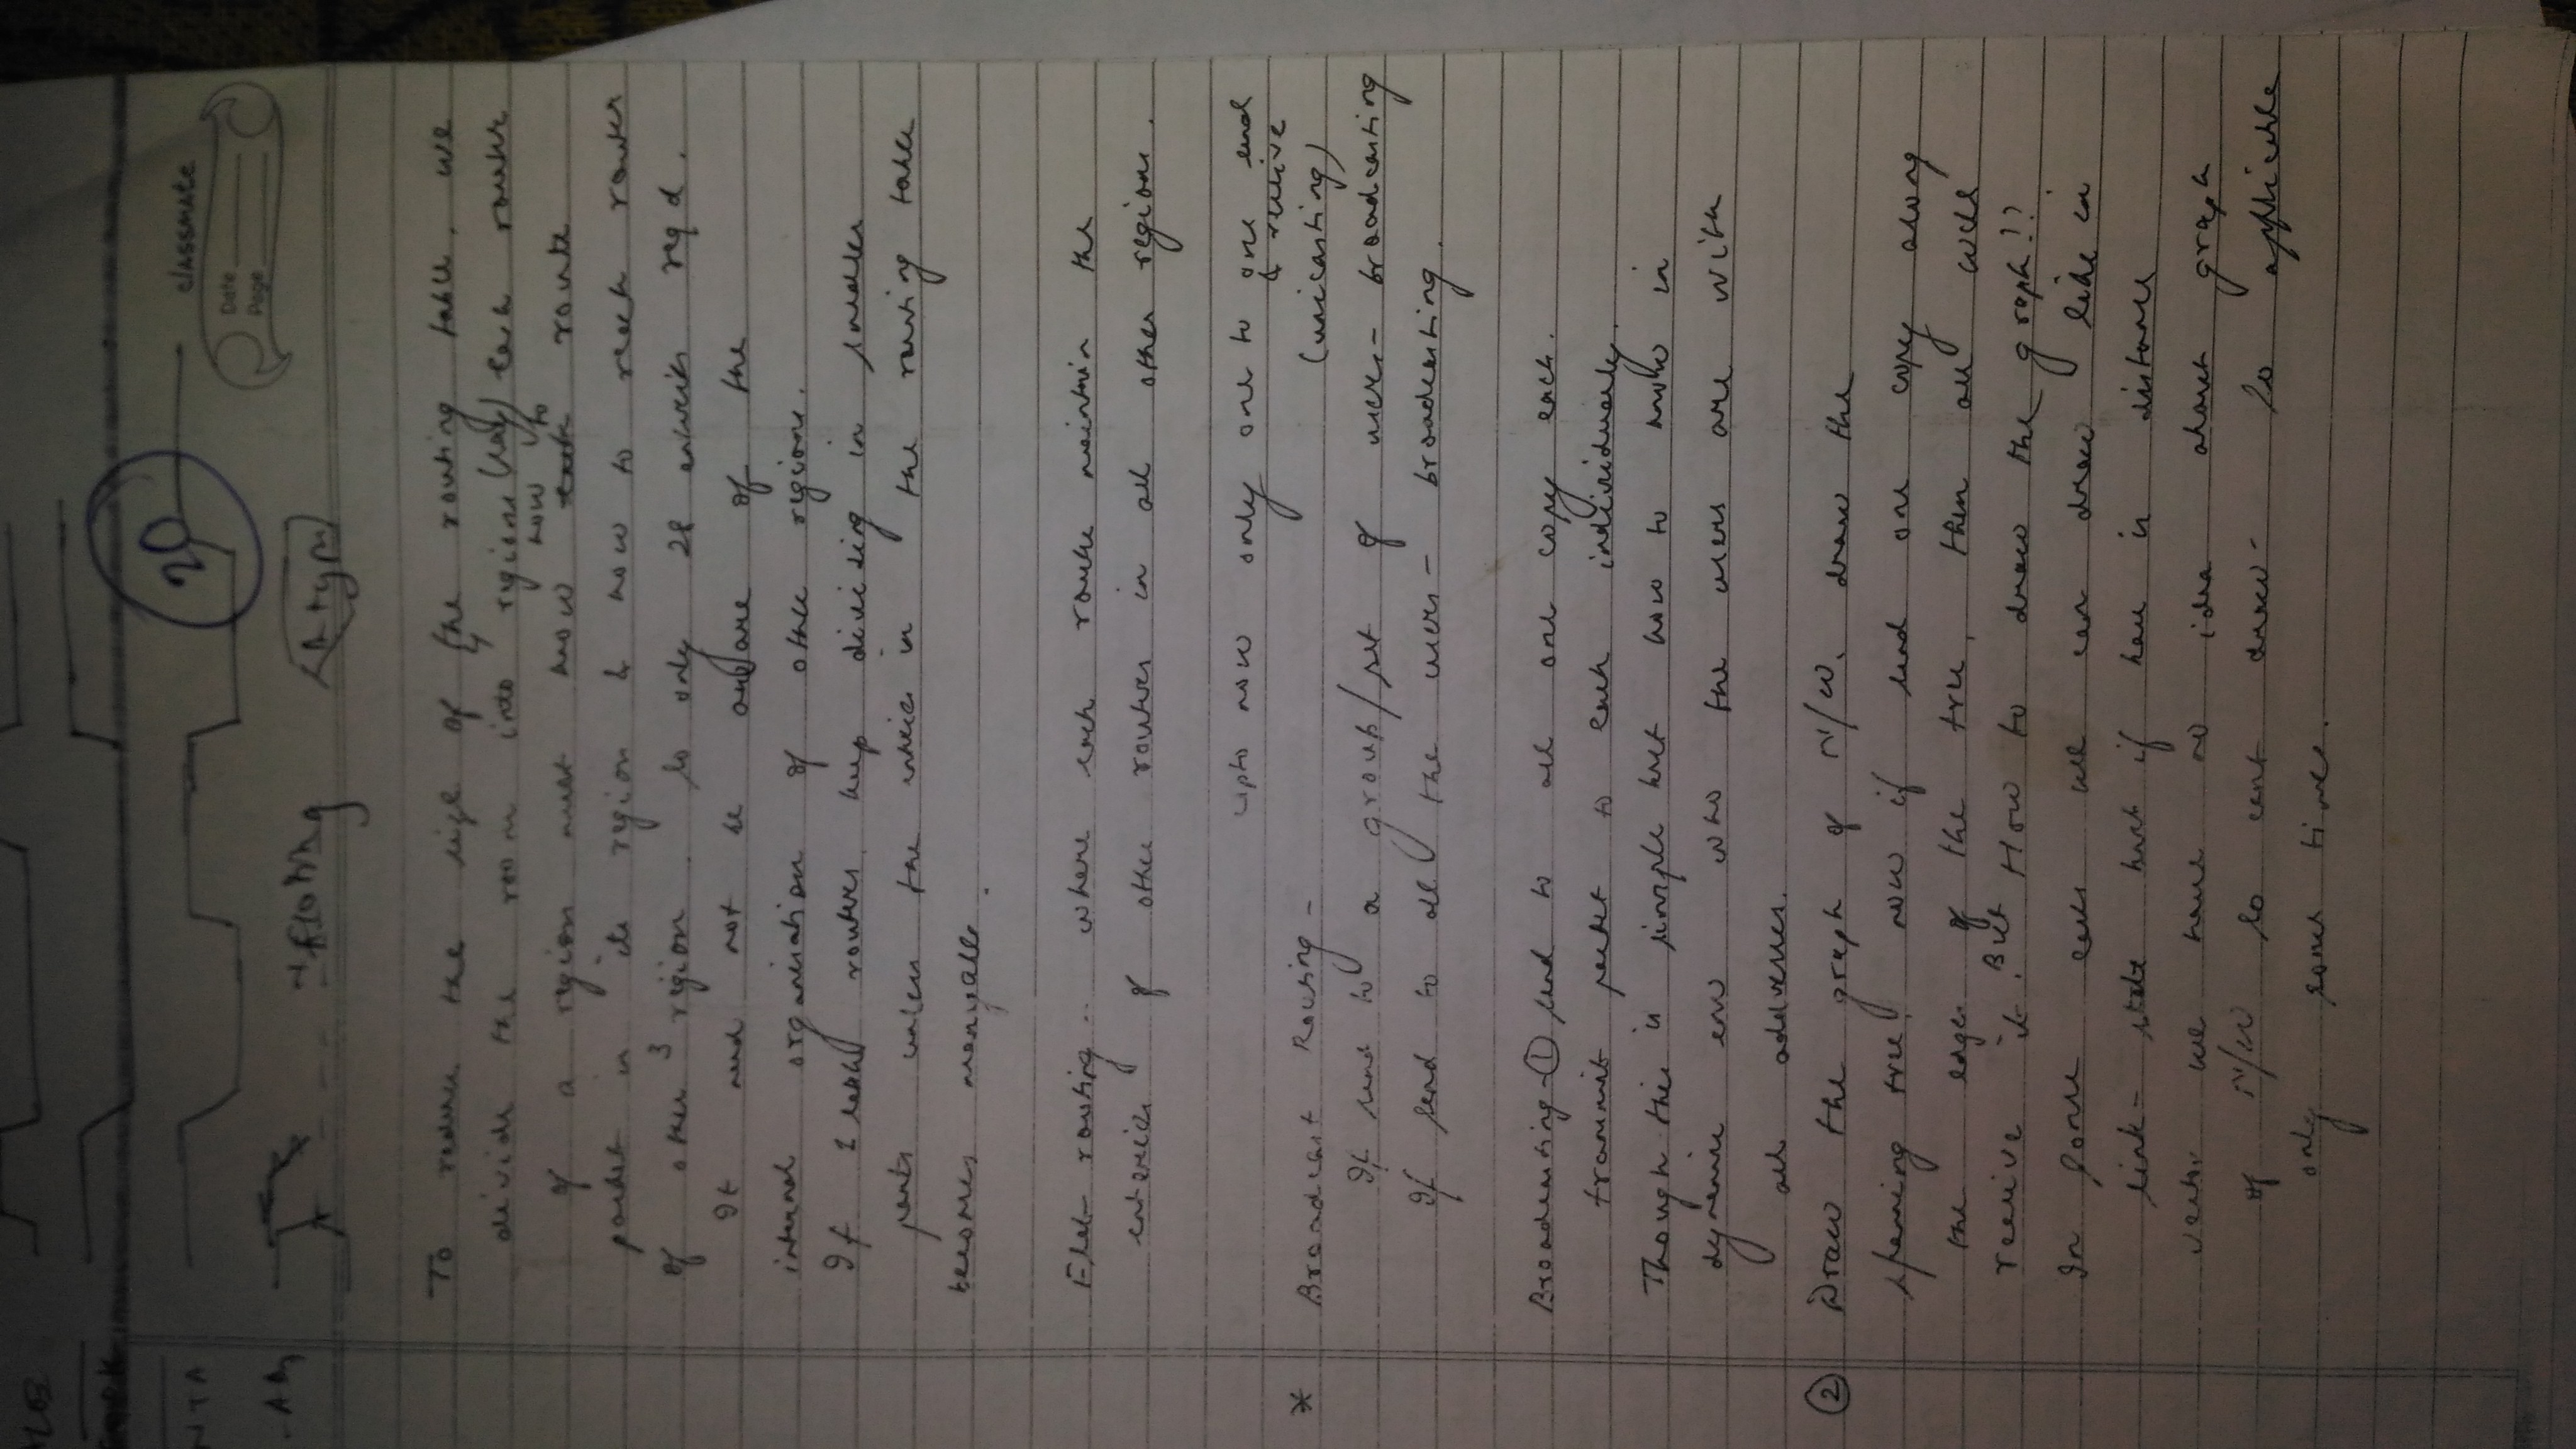 classmate
Date
Page
20
To reduce the size of the routing table, we
divide the room into regions (say) each router
of a region must know how to route
packet in its region & how to reach router
of other 3 region. So only 28 enteries reqd.
It need not be aware of the
internal organisation of other regions.
If I start routers keep dividing in smaller
parts unless the enteries in the routing table
becomes manageable.
Flat routing.. where each router maintain the
enteries of other routers in all other regions.
upto now only one to one send
& receive
(unicasting)
* Broadcast Routing -
If send to a group/set of users - broadcasting
If send to all the users - broadcasting.
Broadcasting - ① send to all one copy each.
transmit packet to each individually.
Though this is simple but how to know in
dynamic env who the users are with
all addresses.
② Draw the graph of N/W. draw the
spanning tree, now if send one copy along
the edges of the tree, then all will
receive it. But How to draw the graph??
In some cases we can draw like in
link-state but if have is distance
vector we have no idea about graph
of N/W so cant draw. So applicable
only some time.